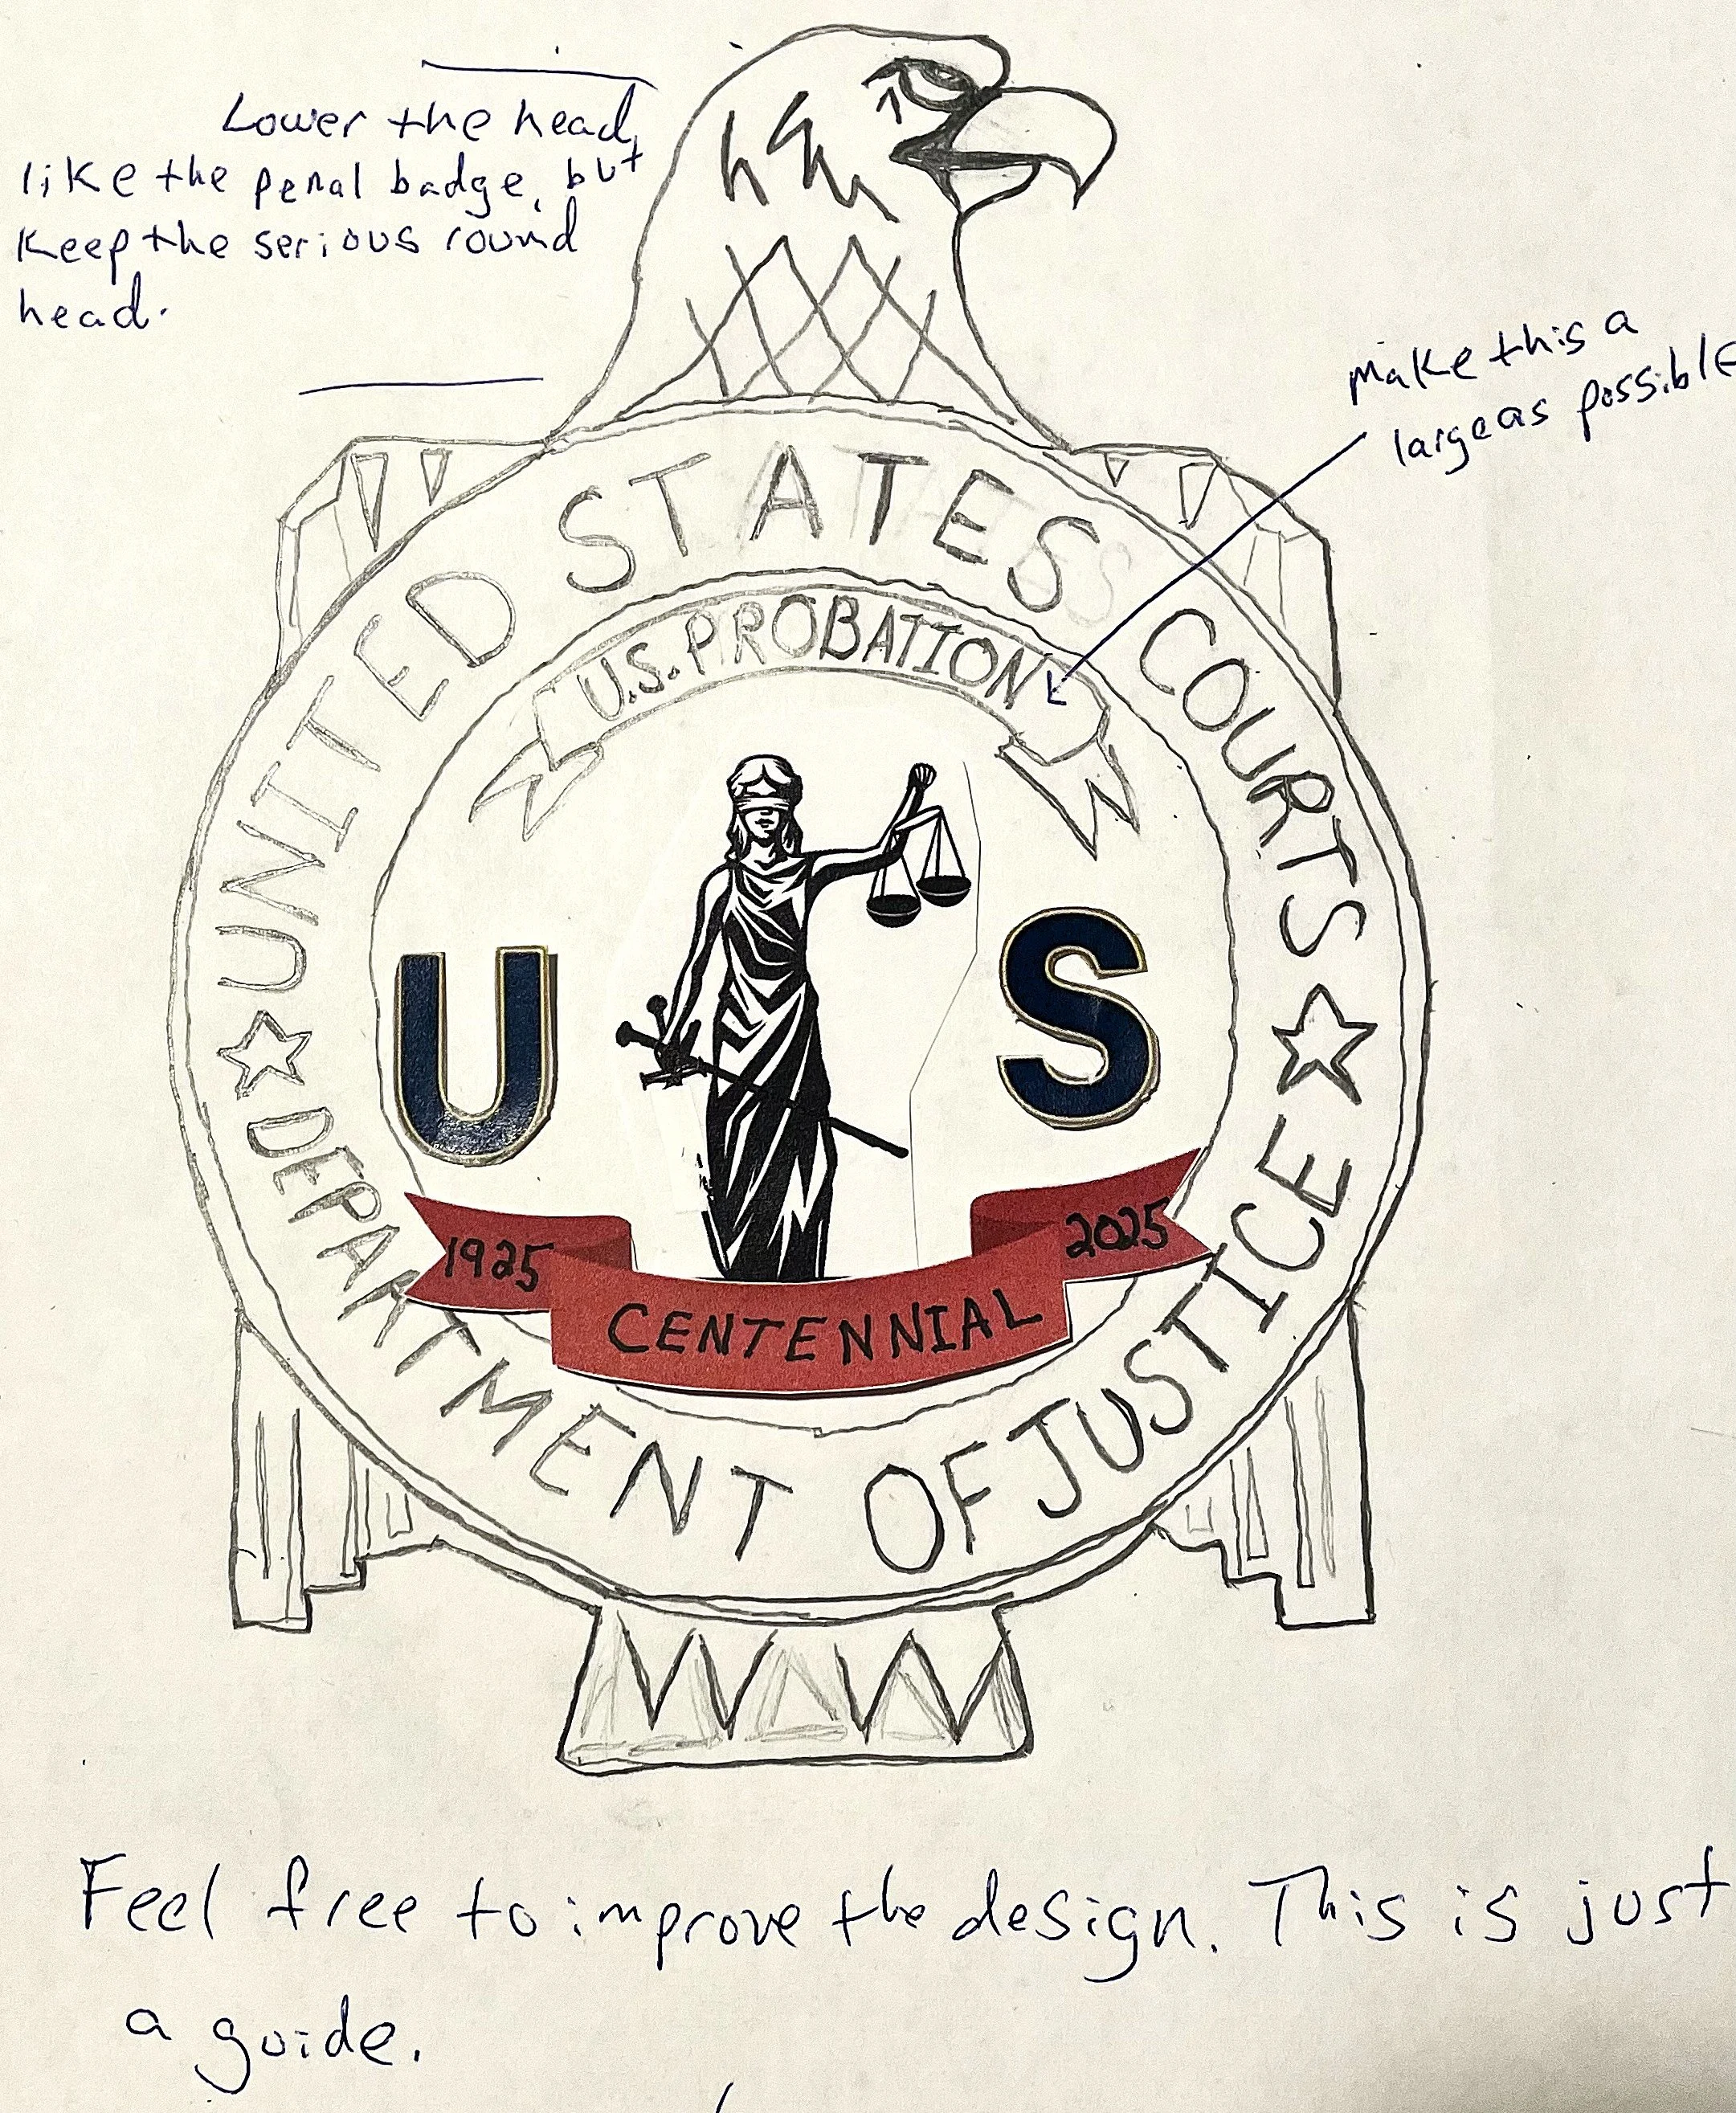 Lower the head,
like the penal badge, but
Keep the serious round
head.
Make this a
large as possible
UNITED STATES COURTS
U.S. PROBATION
U S
1925 2025
CENTENNIAL
DEPARTMENT OF JUSTICE
Feel free to improve the design. This is just
a guide.